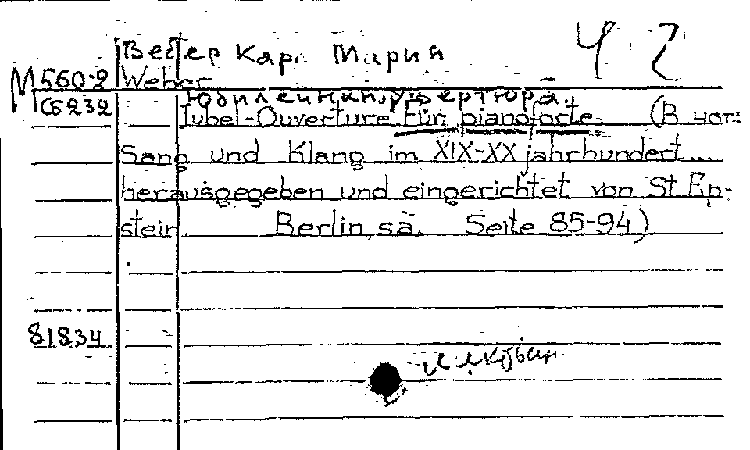 Вебер Карл Мария
Ч 2
М 560-2 Weber
С6232 Юбилейная увертюра.
Jubel-Ouverture für pianoforte. (В нот:
Sang und Klang im XIX-XX jahrhundert...
herausgegeben und eingerichtet von St Ep-
stein. Berlin, s.a. Seite 85-94)
81834